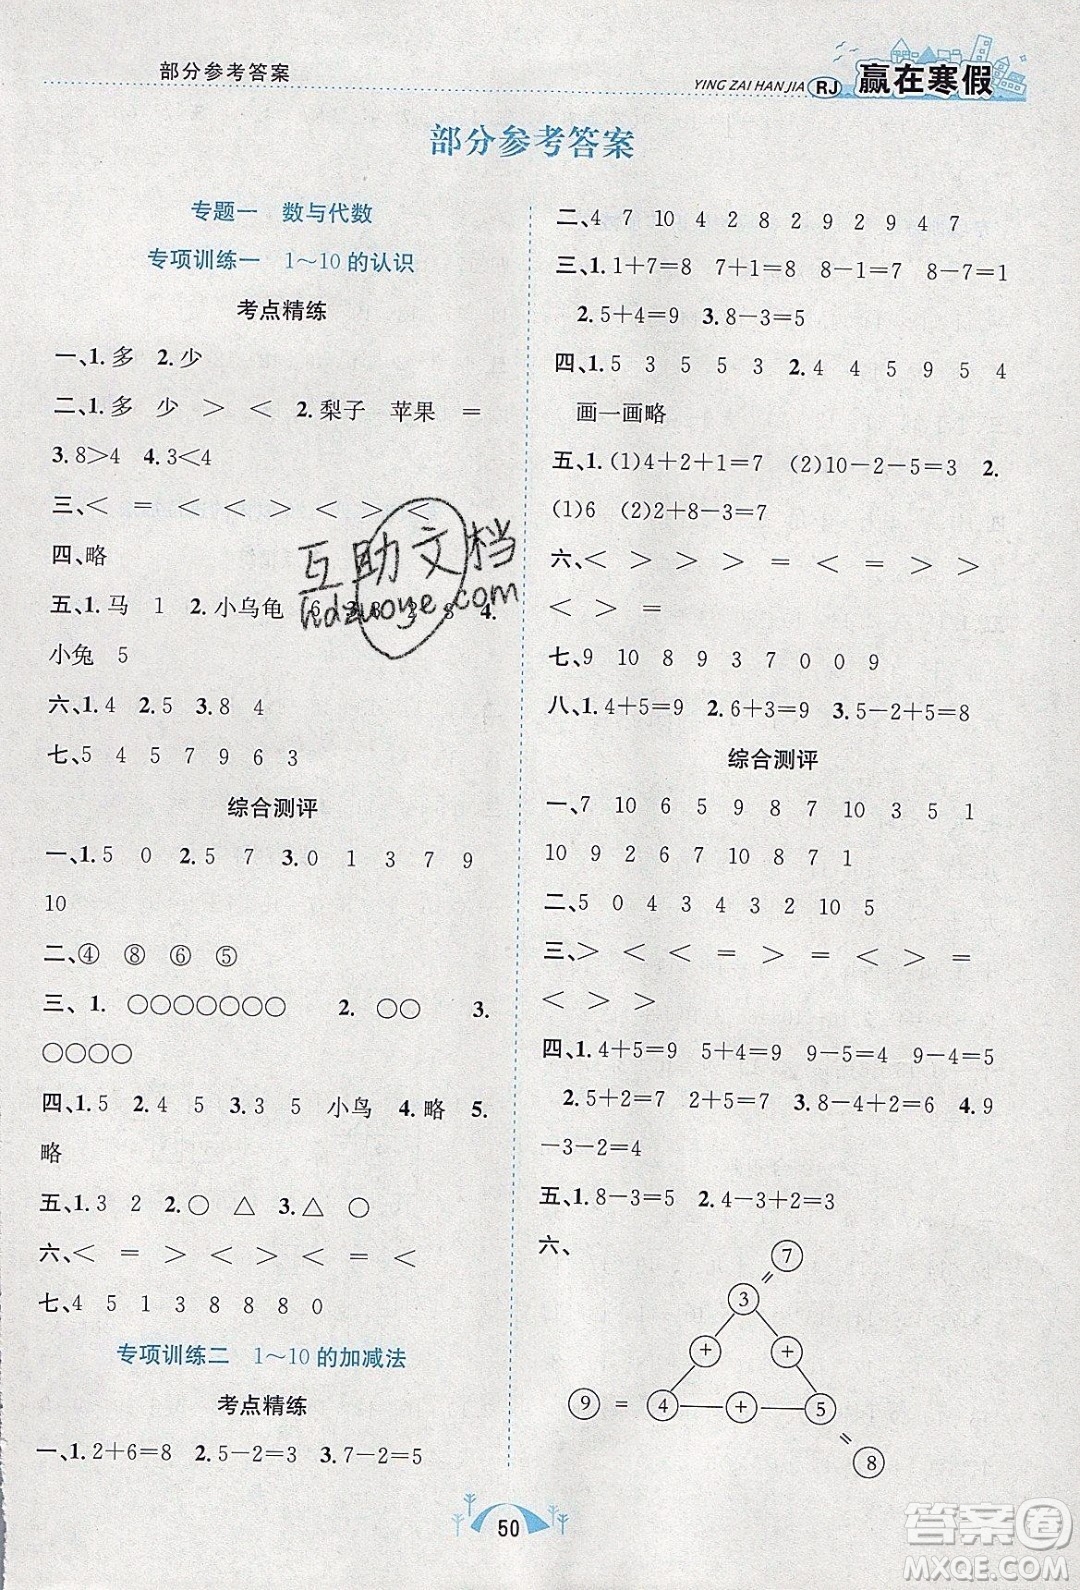 部分参考答案
YING ZAI HAN JIA RJ 赢在寒假
部分参考答案
专题一 数与代数
专项训练一 1～10的认识
考点精练
一、1.多 2.少
二、1.多 少 > < 2.梨子 苹果 =
3.8>4 4.3<4
三、< = < < < > < > <
四、略
五、1.马 1 2.小乌龟 6 3.8 2 8 4.
小兔 5
六、1.4 2.5 3.8 4
七、5 4 5 7 9 6 3
综合测评
一、1.5 0 2.5 7 3.0 1 3 7 9
10
二、④ ⑧ ⑥ ⑤
三、1. ○○○○○○○ 2. ○○ 3.
○○○○
四、1.5 2.4 5 3.3 5 小鸟 4.略 5.
略
五、1.3 2 2.○ △ 3.△ ○
六、< = > < > < = <
七、4 5 1 3 8 8 8 0
专项训练二 1～10的加减法
考点精练
一、1.2+6=8 2.5-2=3 3.7-2=5
二、4 7 10 4 2 8 2 9 2 9 4 7
三、1.1+7=8 7+1=8 8-1=7 8-7=1
2.5+4=9 3.8-3=5
四、1.5 3 5 5 3 2.4 4 5 9 5 4
画一画略
五、1.(1)4+2+1=7 (2)10-2-5=3 2.
(1)6 (2)2+8-3=7
六、< > > > = = = > >
< > =
七、9 10 8 9 3 7 0 0 9
八、1.4+5=9 2.6+3=9 3.5-2+5=8
综合测评
一、7 10 6 5 9 8 7 10 3 5 1
10 9 2 6 7 10 8 7 1
二、5 0 4 3 4 3 2 10 5
三、> < = > = < > =
< > >
四、1.4+5=9 5+4=9 9-5=4 9-4=5
2.5+2=7 2+5=7 3.8-4+2=6 4.9
-3-2=4
五、1.8-3=5 2.4-3+2=3
六、
7
=
3
+ +
9 = 4 + 5
=
8
50
互助文档
hdzuoye.com
答案卷
MXQE.COM